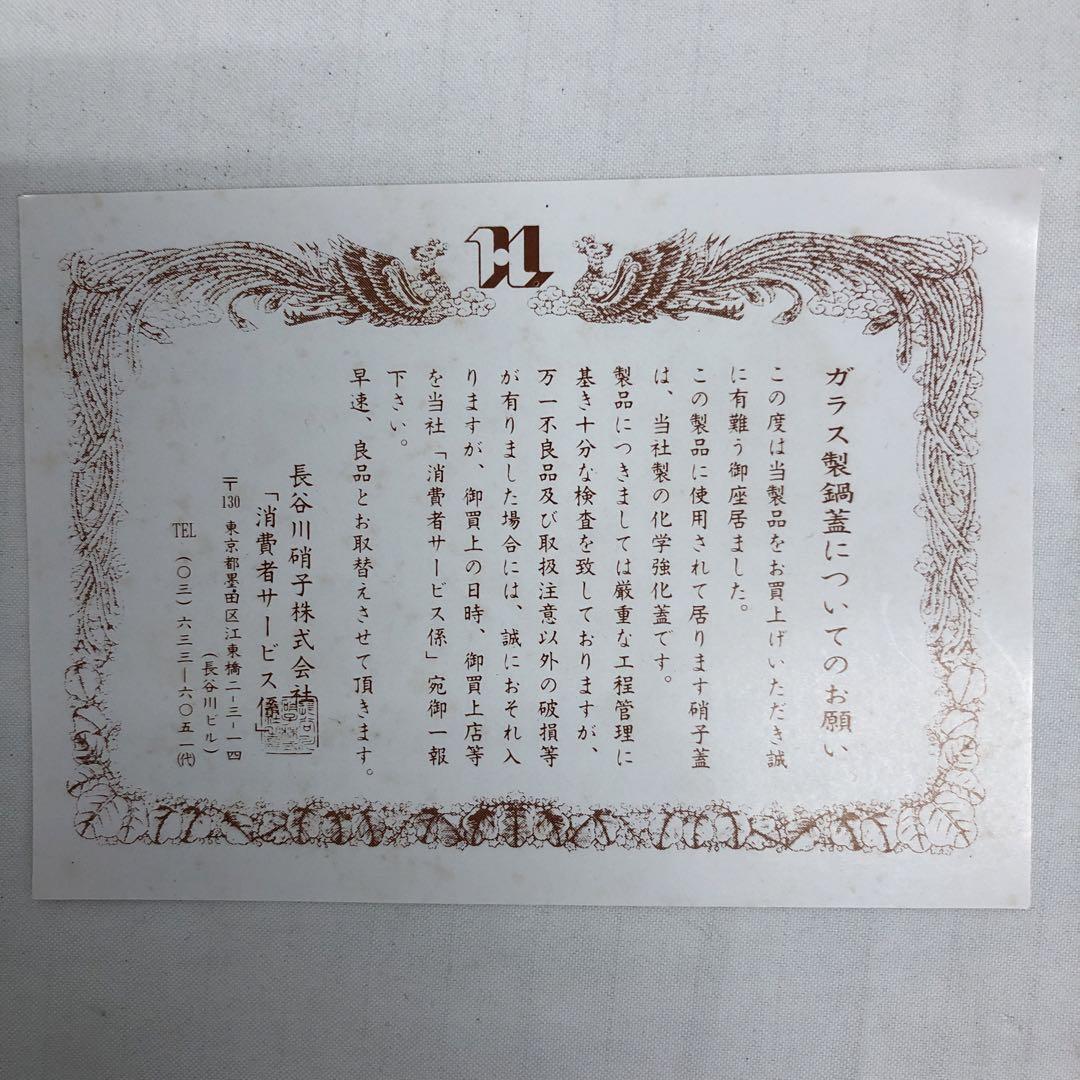 ガラス製鍋蓋についてのお願い
この度は当製品をお買上げいただき誠
に有難う御座居ました。
この製品に使用されて居ります硝子蓋
は、当社製の化学強化蓋です。
製品につきましては厳重な工程管理に
基き十分な検査を致しておりますが、
万一不良品及び取扱注意以外の破損等
が有りました場合には、誠におそれ入
りますが、御買上の日時、御買上店等
を当社「消費者サービス係」宛御一報
下さい。
早速、良品とお取替えさせて頂きます。
長谷川硝子株式会社
「消費者サービス係」
〒130 東京都墨田区江東橋二-三-一四
(長谷川ビル)
TEL (〇三)六三三-六〇五一(代)